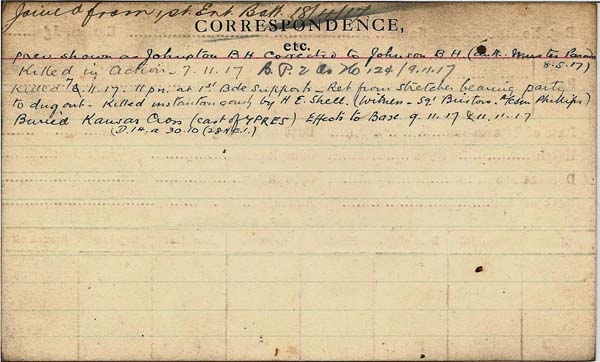 Joined from 1st Ent Batt 18/4/17
CORRESPONDENCE,
etc.
prev shown as Johnston B H. Corrected to Johnson B H. (auth. Muster Parade
8.5.17)
Killed in Action - 7.11.17 B.P. 2 No 124/9.11.17
Killed 6.11.17. 11 pm. at 1st Bde Supports - Ret from stretcher bearing party
to dug out - Killed instantaneously by H E Shell. (Witness - Sgt Burton.
Buried Kansas Cross (east of YPRES) Effects to Base 9.11.17 & 11.11.17
D.14.a 30.10 (28 N.E.1.)